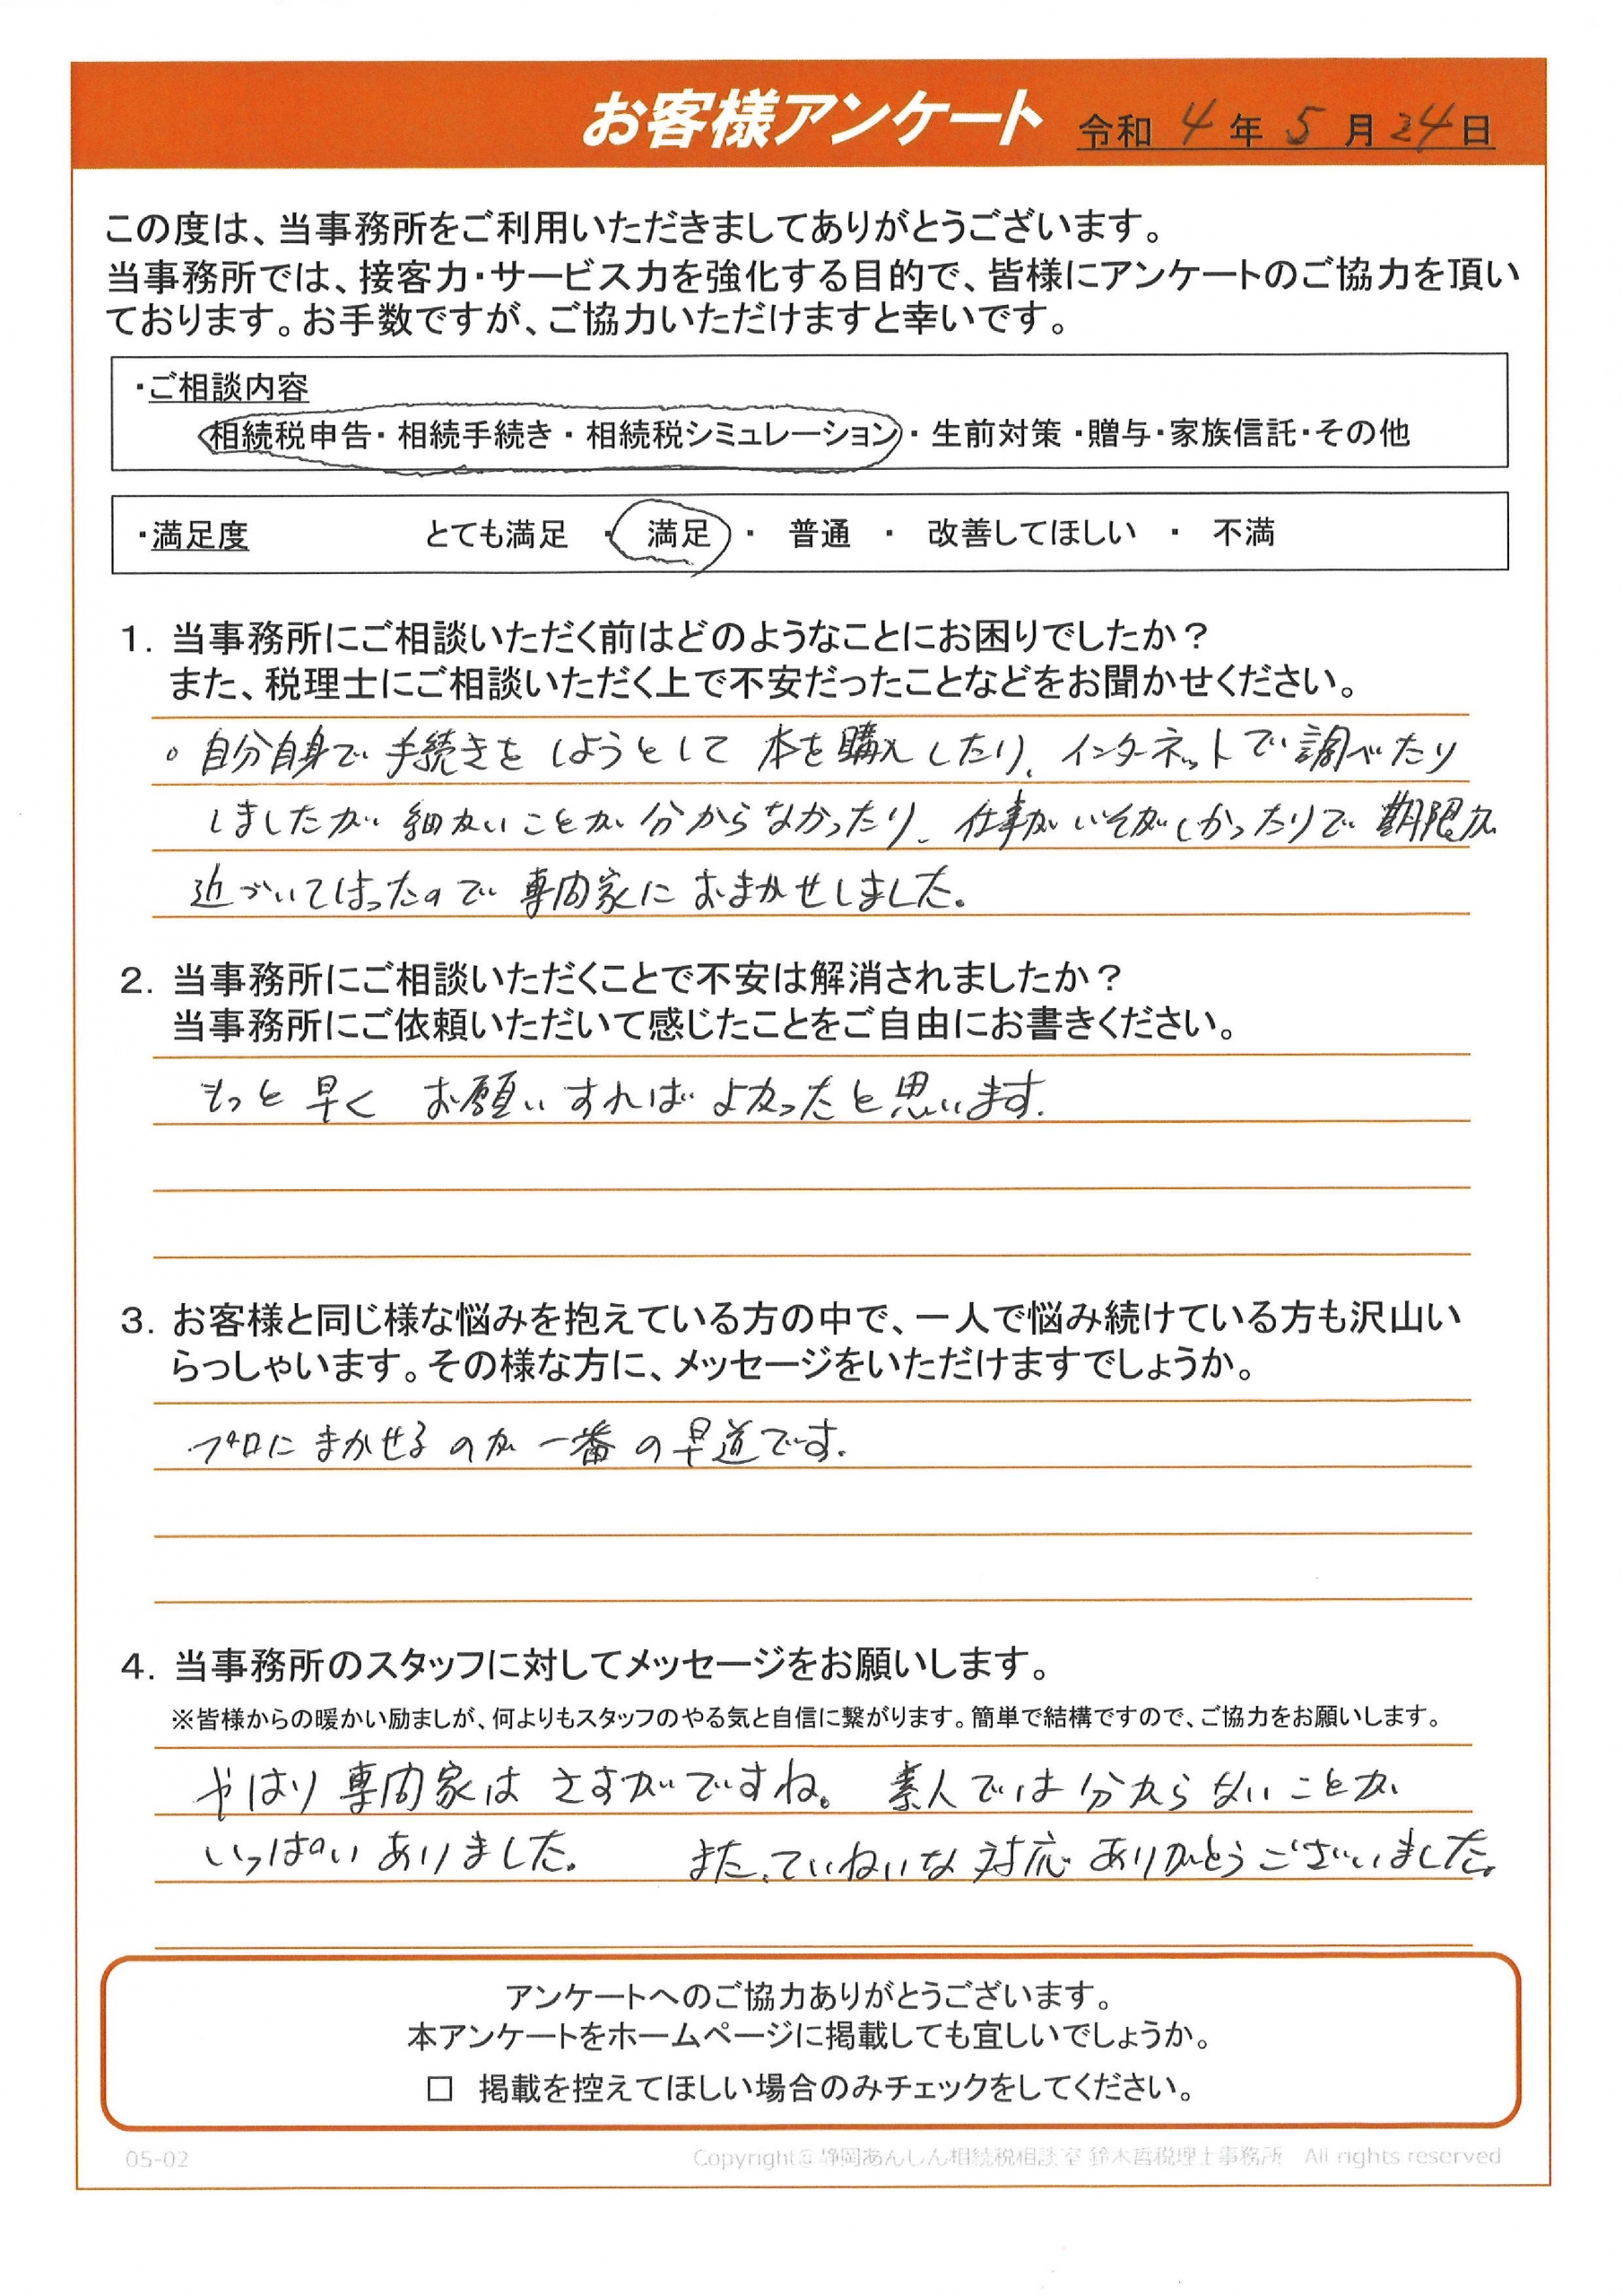 お客様アンケート 令和 4 年 5 月 24 日
この度は、当事務所をご利用いただきましてありがとうございます。
当事務所では、接客力・サービス力を強化する目的で、皆様にアンケートのご協力を頂い
ております。お手数ですが、ご協力いただけますと幸いです。
・ご相談内容
相続税申告・相続手続き・相続税シミュレーション・生前対策・贈与・家族信託・その他
・満足度 とても満足 ・ 満足 ・ 普通 ・ 改善してほしい ・ 不満
1. 当事務所にご相談いただく前はどのようなことにお困りでしたか？
また、税理士にご相談いただく上で不安だったことなどをお聞かせください。
。自分自身で手続きをしようとして本を購入したり、インターネットで調べたり
しましたが細かいことが分からなかったり、仕事がいそがしかったりで期限が
近づいてしまったので専門家におまかせしました。
2. 当事務所にご相談いただくことで不安は解消されましたか？
当事務所にご依頼いただいて感じたことをご自由にお書きください。
もっと早くお願いすればよかったと思います.
3. お客様と同じ様な悩みを抱えている方の中で、一人で悩み続けている方も沢山い
らっしゃいます。その様な方に、メッセージをいただけますでしょうか。
プロにまかせるのが一番の早道です.
4. 当事務所のスタッフに対してメッセージをお願いします。
※皆様からの暖かい励ましが、何よりもスタッフのやる気と自信に繋がります。簡単で結構ですので、ご協力をお願いします。
やはり専門家はさすがですね。 素人では分からないことが
いっぱいありました。 また、ていねいな対応ありがとうございました。
アンケートへのご協力ありがとうございます。
本アンケートをホームページに掲載しても宜しいでしょうか。
□ 掲載を控えてほしい場合のみチェックをしてください。
05-02 Copyright© 静岡あんしん相続税相談室 鈴木哲税理士事務所 All rights reserved